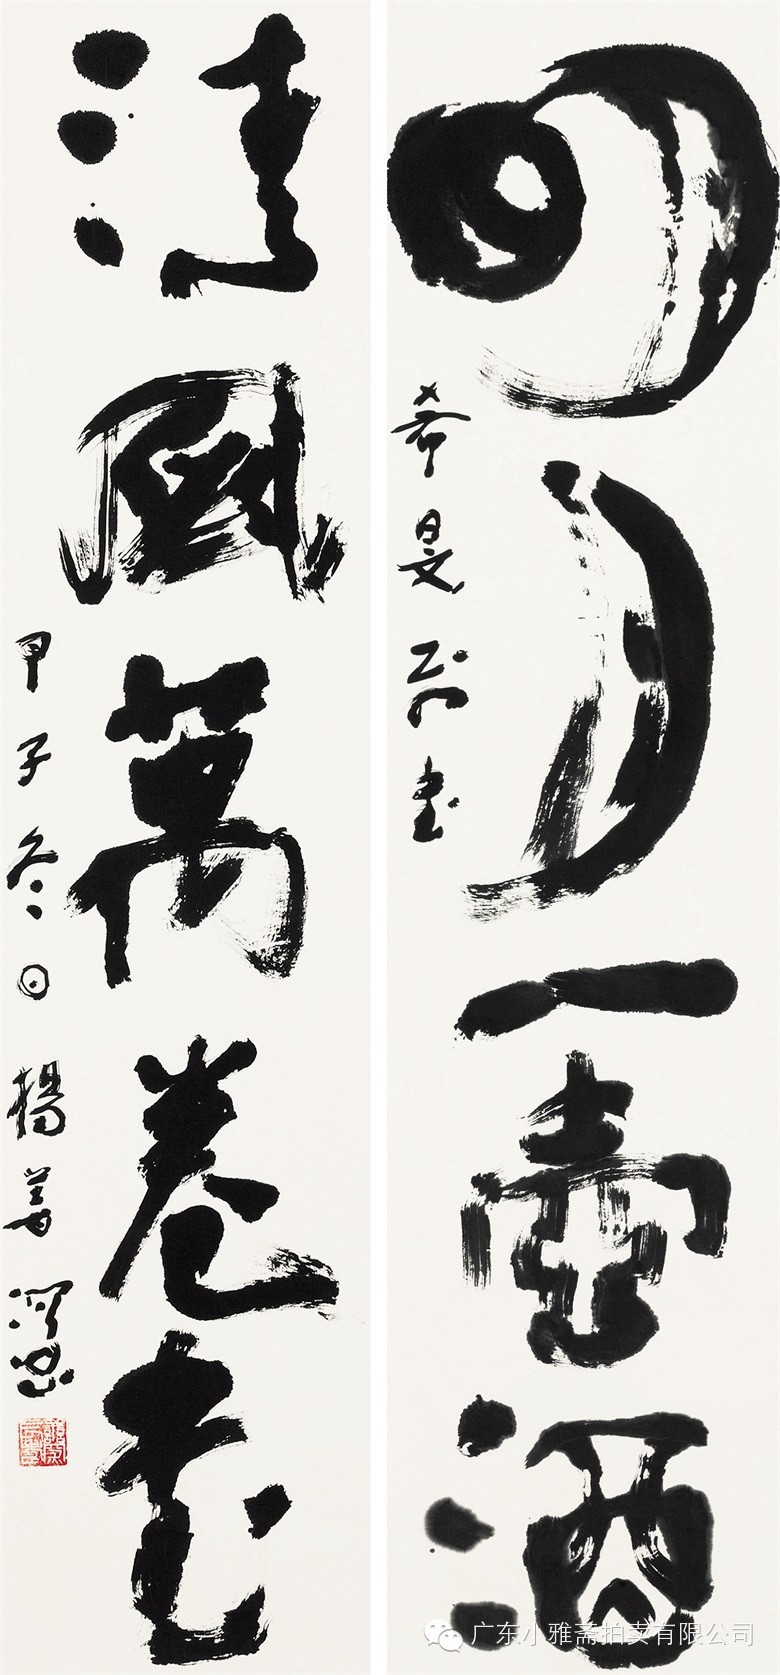 明月一壶酒
希旻
書
清風萬卷書
甲子冬日
楊善深
广东小雅斋拍卖有限公司